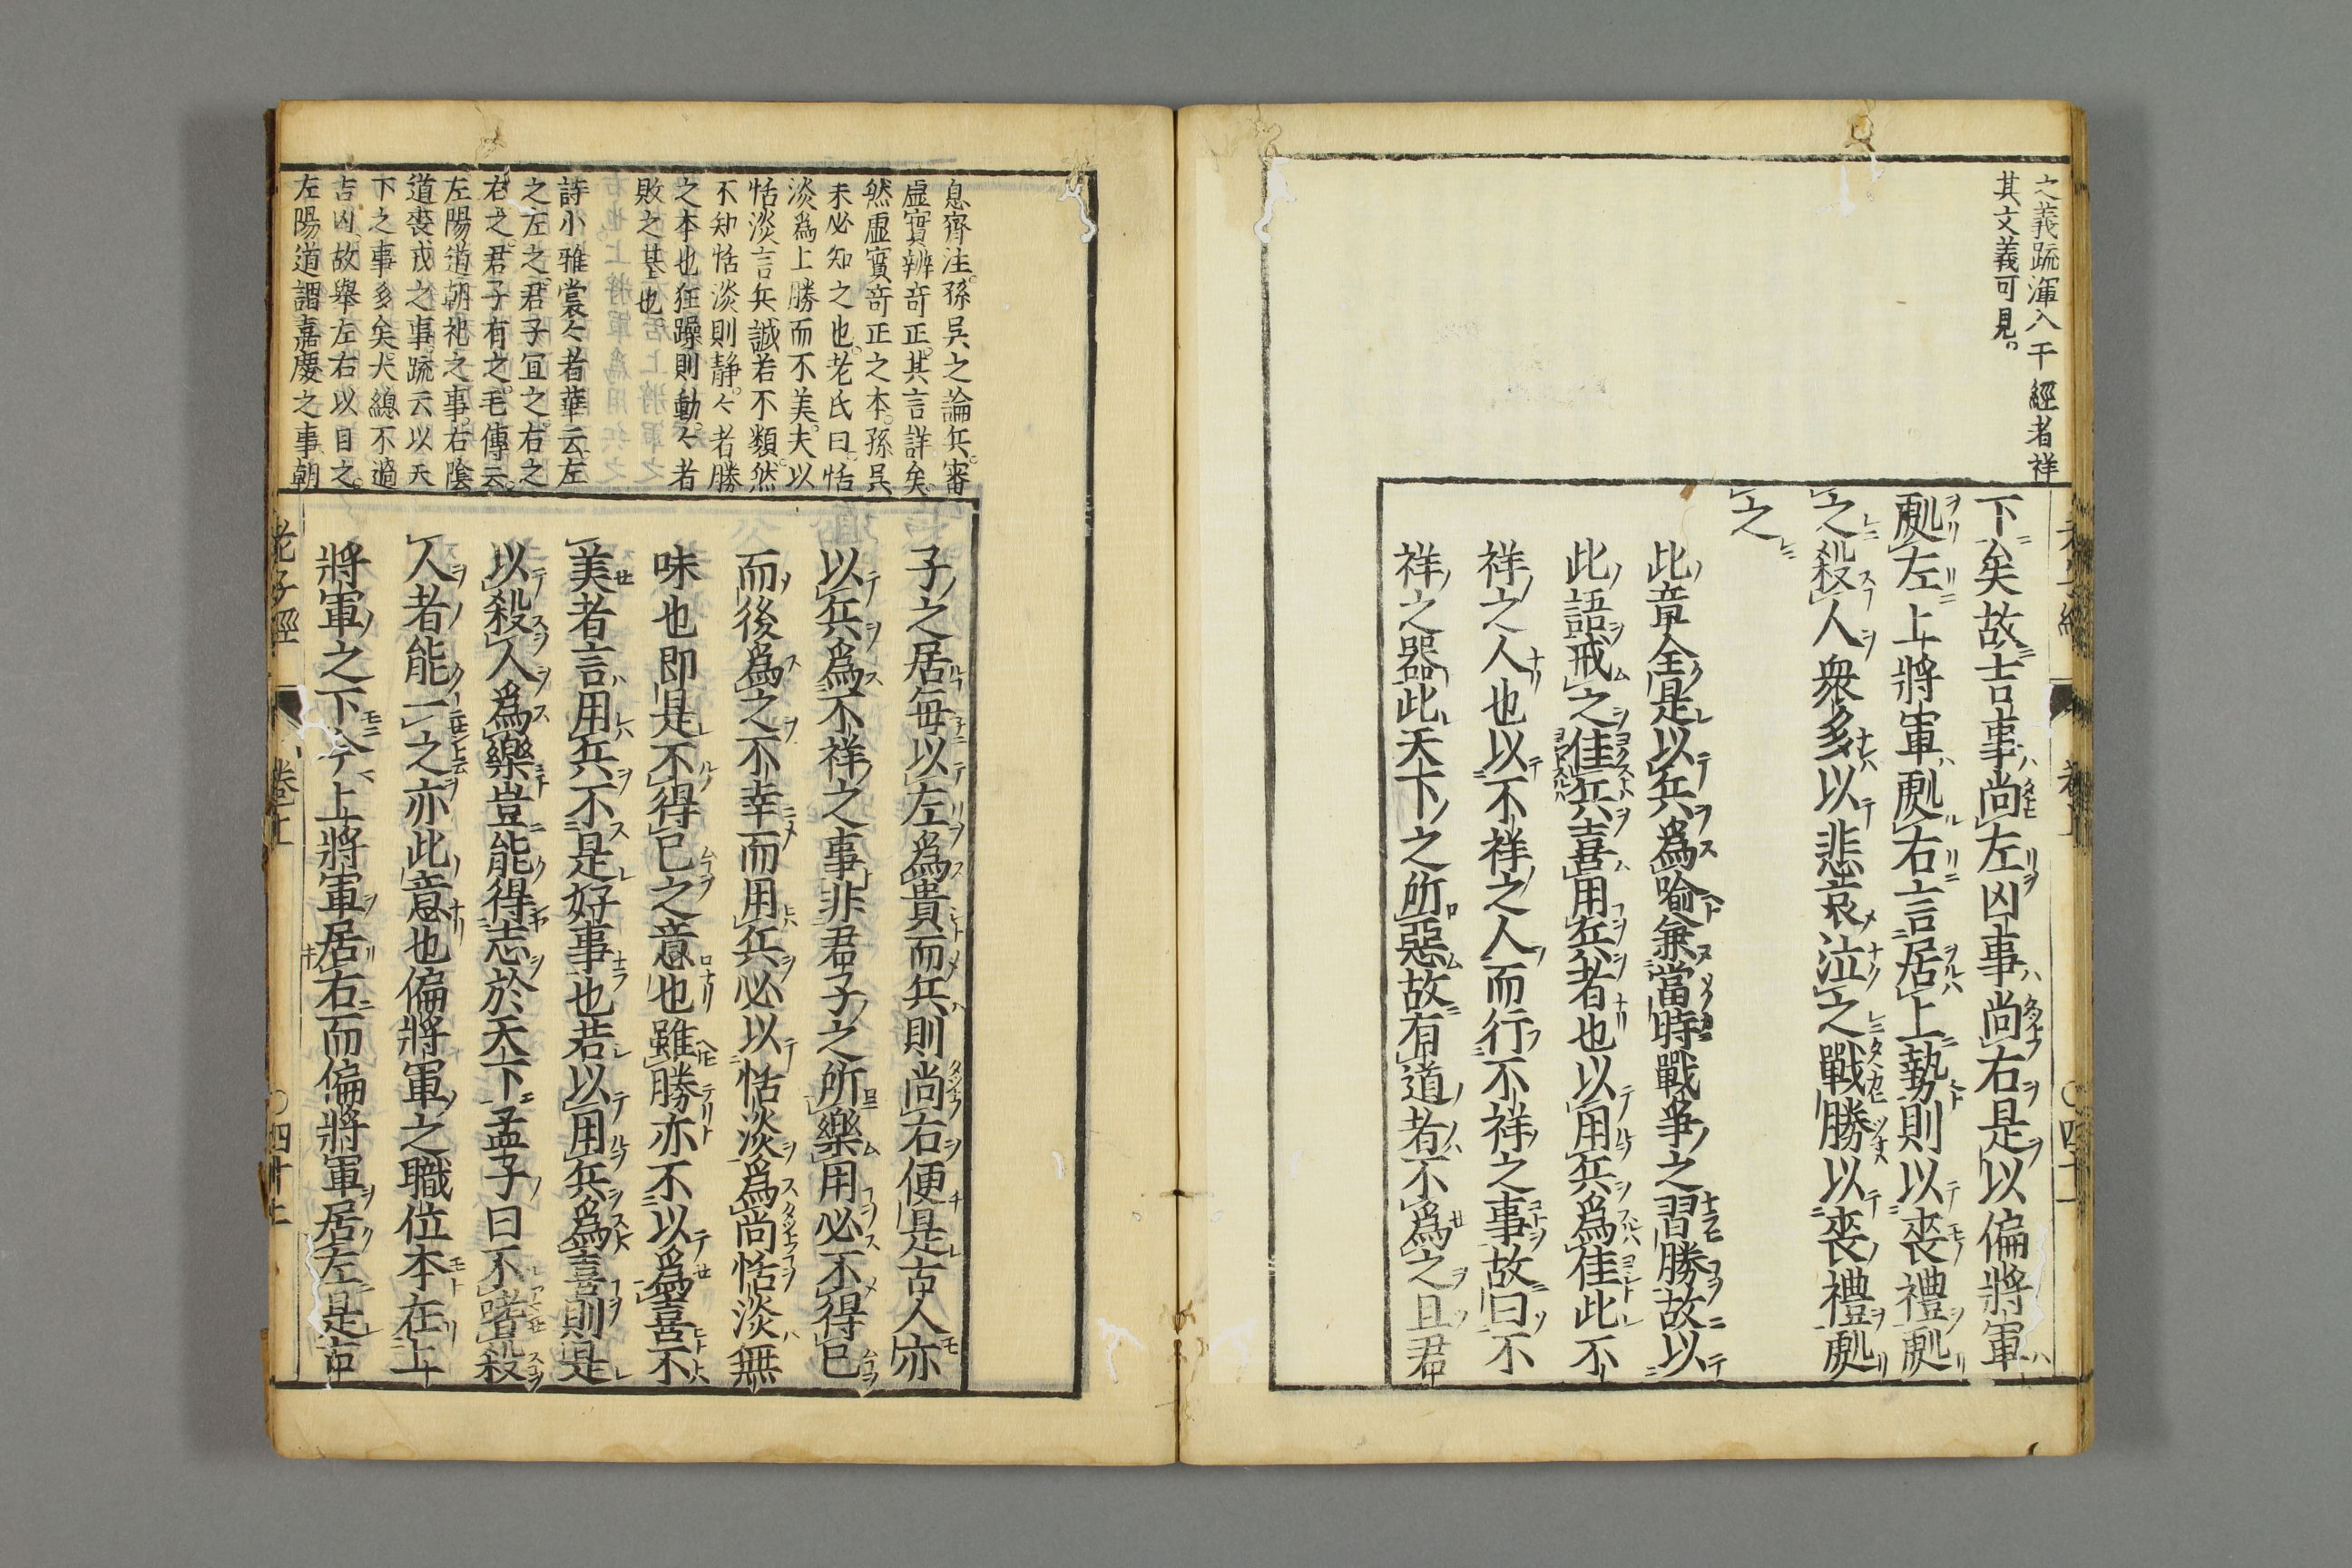 之義疏渾入干經者祥
其文義可見
下矣故吉事尚左凶事尚右是以偏將軍
處左上將軍處右言居上勢則以喪禮處
之殺人衆多以悲哀泣之戰勝以喪禮處
之
此章全是以兵爲喩兼當時戰爭之習勝故以
此語戒之佳兵喜用兵者也以用兵爲佳此不
祥之人也以不祥之人而行不祥之事故曰不
祥之器此天下之所惡故有道者不爲之且君
息齊注孫吳之論兵審
虛實辨奇正其言詳矣
然虛實奇正之本孫吳
未必知之也老氏曰恬
淡爲上勝而不美夫以
恬淡言兵誠若不類然
不知恬淡則靜々者勝
之本也狂躁則動々者
敗之基也
詩小雅裳々者華云左
之左之君子宜之右之
右之君子有之毛傳云
左陽道朝祀之事右陰
道喪戎之事疏云以天
下之事多矣大總不過
吉凶故舉左右以目之
左陽道謂嘉慶之事朝
子之居毎以左爲貴而兵則尚右便是古人亦
以兵爲不祥之事非君子之所樂用必不得已
而後爲之不幸而用兵必以恬淡爲尚恬淡無
味也即是不得已之意也雖勝亦不以爲喜不
美者言用兵不是好事也若以用兵爲喜則是
以殺人爲樂豈能得志於天下孟子曰不嗜殺
人者能一之亦此意也偏將軍之職位本在上
將軍之下今上將軍居右而偏將軍居左是古
老子經 卷上 〇四十二